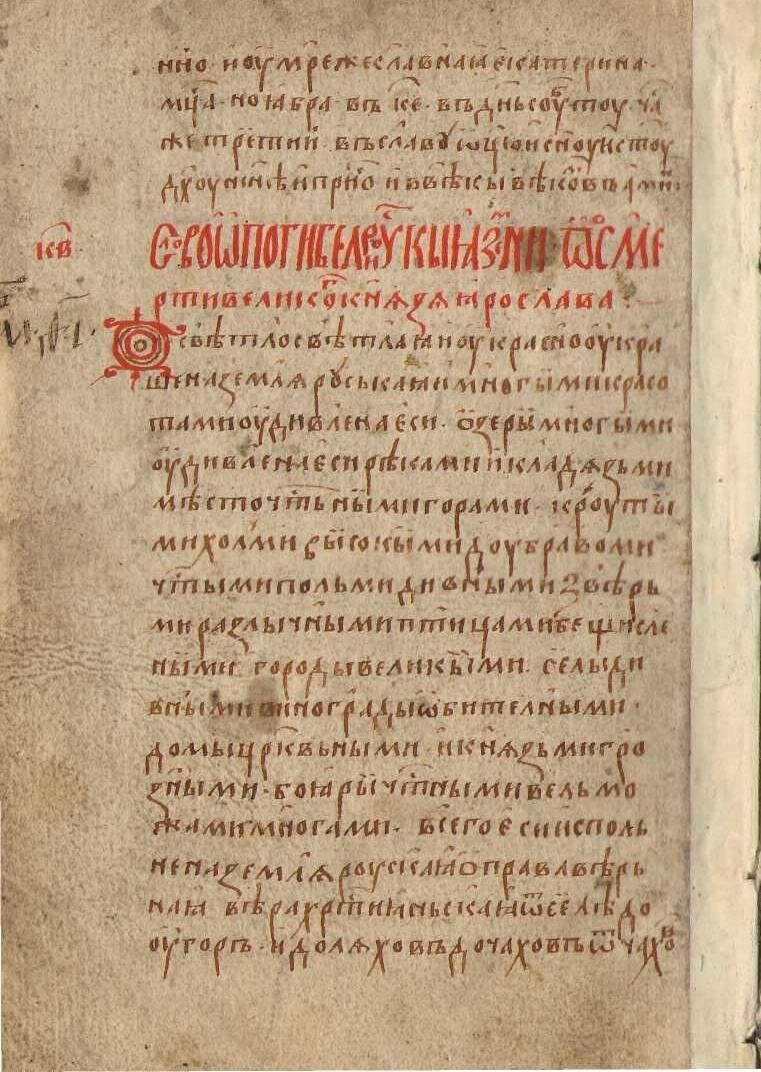 нно· и оумре же славнаꙗ екатерина·
мц҃а· ноꙗбра· въ к҃е· въ дн҃ь соуⷠтоу· ча҃
же третии· въ славоу ѡц҃ю и сн҃оу и ст҃оу
дх҃оу нн҃ѣ и прⷭ҇но и въ вѣкы вѣкоⷨ҇въ ами҃н:
к҃в·
Слоⷡ҇во ѡ погибели роускыꙗ земли· ѡ҃ по смє
рти великоⷢ҇ кнѧзѧ ꙗрослава:
О свѣтло свѣтлаꙗ и оукрасно оукра
шена землѧ руськаꙗ и многыми красо
тами оудивлена еси· ѡзеры многыми
оудивлена еси рѣками и кладѧзьми
мѣсточтⷭ҇ьными горами· кроуты
ми холми высокыми доубравоми
чтⷭ҇ыми польми дивными звѣрь
ми разлычными птицами бещисле
ными· городы великыми· селы ди
вными винограды ѡбителными·
домы црк҃вьными· и кнѧзьми гро
зными· боꙗры чтⷭ҇ными вельмо
жами многами· всего еси испол
нена землѧ роускаꙗ ѡ правовѣрь
наꙗ вѣра хрⷭ҇тиꙗньскаꙗ ѿселѣ до
оугоръ· и до лѧховъ до чаховъ ѿ чахѡⷡ҇